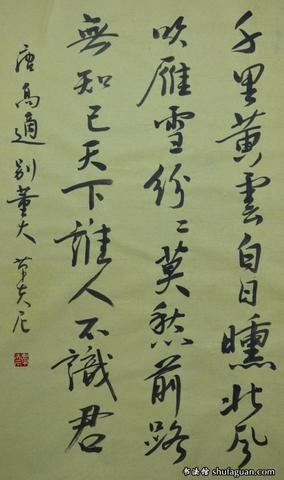 千里黄雲白日曛北风
吹雁雪紛〻莫愁前路
無知己天下誰人不識君
唐高適別董大
书法馆 shufaguan.com